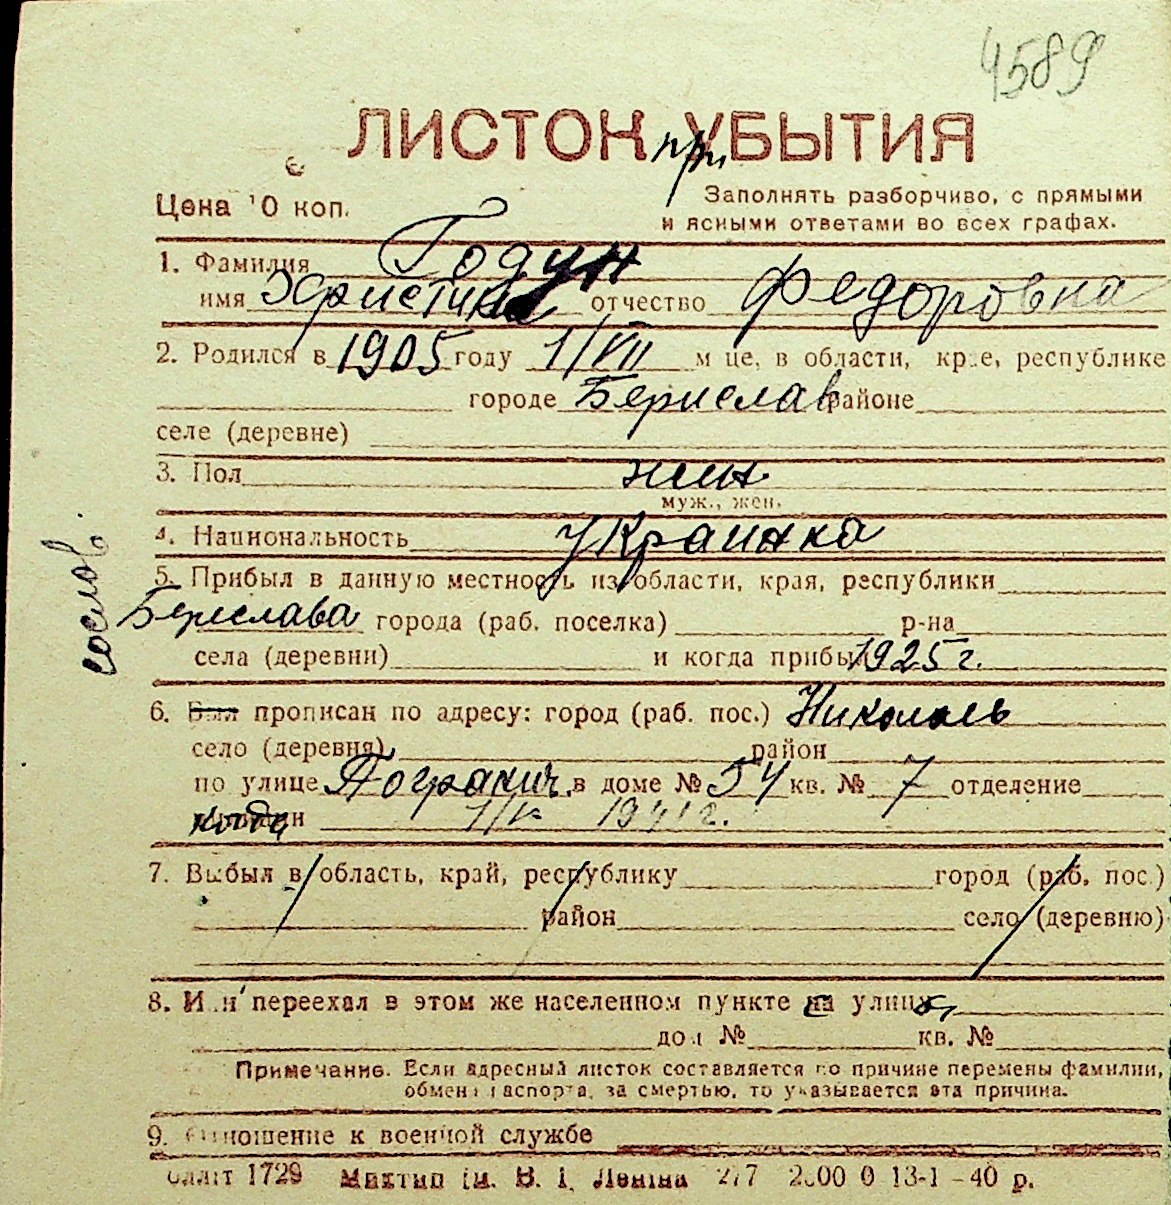 4589
ЛИСТОК при УБЫТИЯ
Цена 10 коп.
Заполнять разборчиво, с прямыми
и ясными ответами во всех графах.
1. Фамилия Годун
имя Христина отчество Федоровна
2. Родился в 1905 году 1/VII м-це, в области, крае, республике
городе Берислав районе
селе (деревне)
3. Пол жен
муж., жен.
4. Национальность украинка
5. Прибыл в данную местность из области, края, республики
Береслава города (раб. поселка) р-на
села (деревни) и когда прибыл 1925 г.
6. Был прописан по адресу: город (раб. пос.)
село (деревня) район
по улице Погранич. в доме № 54 кв. № 7 отделение
когда 1941 г.
7. Выбыл в область, край, республику город (раб. пос.)
район село (деревню)
8. Или переехал в этом же населенном пункте с улицы
дом № кв. №
Примечание. Если адресный листок составляется по причине перемены фамилии,
обмена паспорта, за смертью, то указывается эта причина.
9. Отношение к военной службе
1729 им. В. І. Леніна 13-1-40 р.